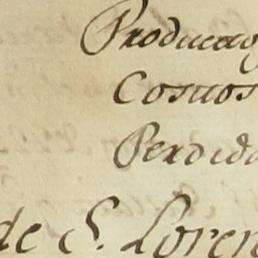 Producaõ
Cosuos
Perdida
de S. Loren